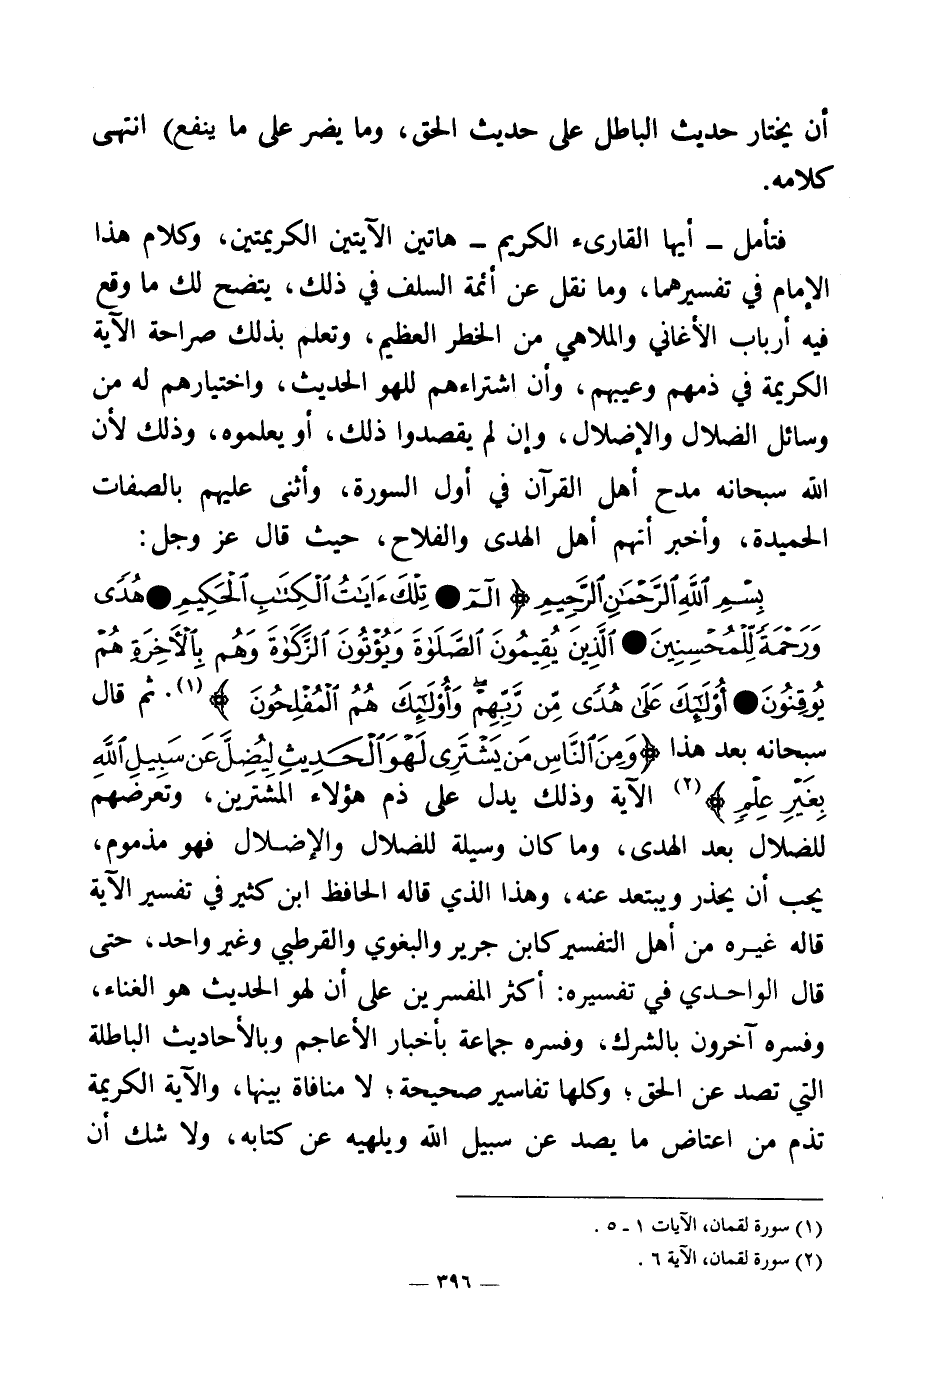 أن يختار حديث الباطل على حديث الحق، وما يضر على ما ينفع) انتهى
كلامه.
فتأمل ــ أيها القارىء الكريم ــ هاتين الآيتين الكريمتين، وكلام هذا
الإمام في تفسيرهما، وما نقل عن أئمة السلف في ذلك، يتضح لك ما وقع
فيه أرباب الأغاني والملاهي من الخطر العظيم، وتعلم بذلك صراحة الآية
الكريمة في ذمهم وعيبهم، وأن اشتراءهم للهو الحديث، واختيارهم له من
وسائل الضلال والإضلال، وإن لم يقصدوا ذلك، أو يعلموه، وذلك لأن
الله سبحانه مدح أهل القرآن في أول السورة، وأثنى عليهم بالصفات
الحميدة، وأخبر أنهم أهل الهدى والفلاح، حيث قال عز وجل:
بِسْمِ ٱللَّهِ ٱلرَّحْمَٰنِ ٱلرَّحِيمِ ﴿ الٓمٓ ● تِلْكَ ءَايَٰتُ ٱلْكِتَٰبِ ٱلْحَكِيمِ ● هُدًى
وَرَحْمَةً لِّلْمُحْسِنِينَ ● ٱلَّذِينَ يُقِيمُونَ ٱلصَّلَوٰةَ وَيُؤْتُونَ ٱلزَّكَوٰةَ وَهُم بِٱلْأَخِرَةِ هُمْ
يُوقِنُونَ ● أُو۟لَٰٓئِكَ عَلَىٰ هُدًى مِّن رَّبِّهِمْ ۖ وَأُو۟لَٰٓئِكَ هُمُ ٱلْمُفْلِحُونَ ﴾ (١). ثم قال
سبحانه بعد هذا ﴿وَمِنَ ٱلنَّاسِ مَن يَشْتَرِى لَهْوَ ٱلْحَدِيثِ لِيُضِلَّ عَن سَبِيلِ ٱللَّهِ
بِغَيْرِ عِلْمٍ ﴾ (٢) الآية وذلك يدل على ذم هؤلاء المشترين، وتعرضهم
للضلال بعد الهدى، وما كان وسيلة للضلال والإضلال فهو مذموم،
يجب أن يحذر ويبتعد عنه، وهذا الذي قاله الحافظ ابن كثير في تفسير الآية
قاله غيره من أهل التفسير كابن جرير والبغوي والقرطبي وغير واحد، حتى
قال الواحدي في تفسيره: أكثر المفسرين على أن لهو الحديث هو الغناء،
وفسره آخرون بالشرك، وفسره جماعة بأخبار الأعاجم وبالأحاديث الباطلة
التي تصد عن الحق؛ وكلها تفاسير صحيحة؛ لا منافاة بينها، والآية الكريمة
تذم من اعتاض ما يصد عن سبيل الله ويلهيه عن كتابه، ولا شك أن
(١) سورة لقمان، الآيات ١ ـ ٥ .
(٢) سورة لقمان، الآية ٦ .
— ٣٩٦ —